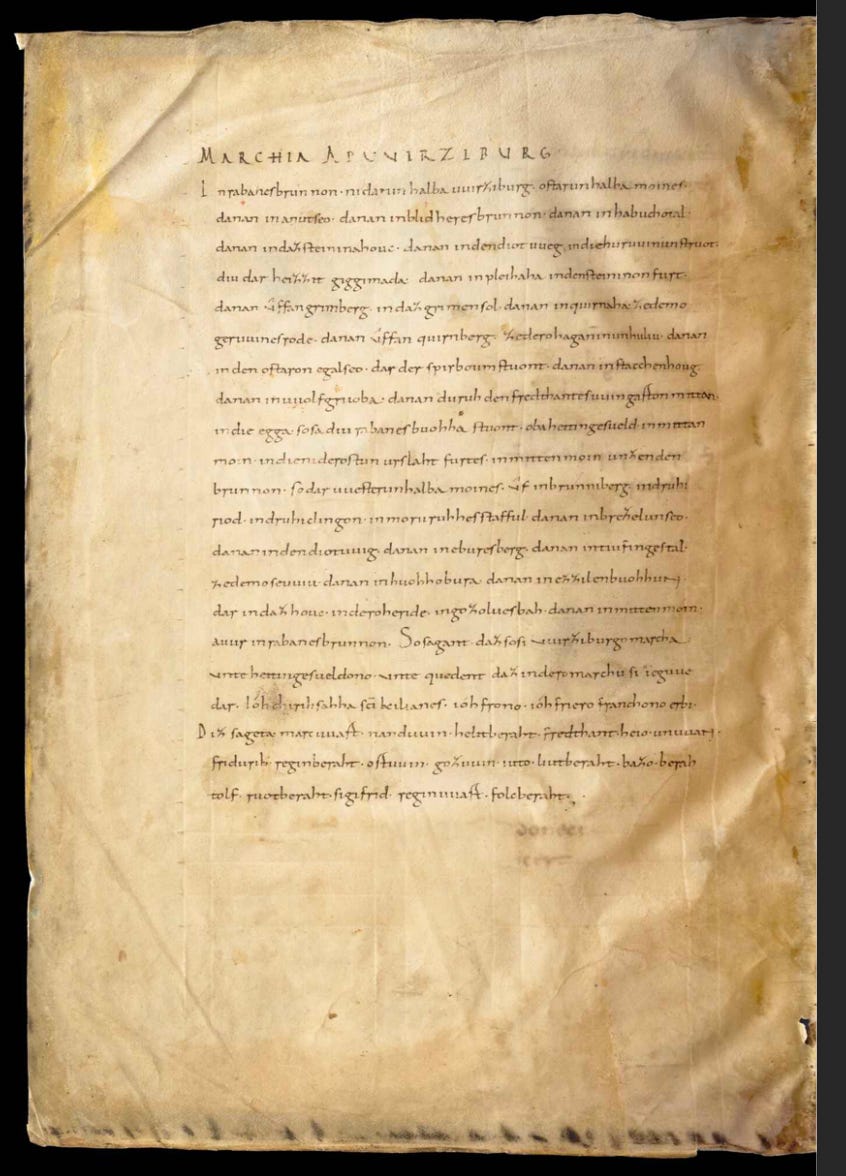 MARCHIA AD UUIRZIBURG
In rabanesbrunnon· nidarun halba uuirziburg· ostarun halba moines·
danan in anutseo· danan in blidheresbrunnon· danan in habuchotal·
danan in daz steininahouc· danan in den diotuueg· in die huruuinunstruot·
diu dar heizzit giggimada· danan in pleihaha in den steininon furt·
danan ûffan grimberg· in daz grimensol· danan in quirnaha ze demo
geruuinesrode· danan ûffan quirnberg· ze dero haganinunhuliu· danan
in den ostaron egalseo· dar der spirboum stuont· danan in stacchenhoug·
danan in uuolfgruoba· danan duruh den fredthantesuuingarton mittan·
in die egga· sosa diu rabanesbuohha stuont· oba heitingesueld· in mittan
moin· in die niderostun urslaht furtes· in mitten moin· unzen den
brunnon· so dar uuesterun halba moines· ûf in brunniberg· in druhi
riod· in druhiclingon· in moruhhesstafful· danan in brezelunseo·
danan in den diotuuig· danan in eburesberg· danan in tiufingestal·
ze demo seuuiu· danan in huohhobura· danan in ezzilenbuohhun·
dar in daz houc· in dero heride· in gozolvesbah· danan in mitten moin·
auur in rabanesbrunnon· So sagant· daz so si uuirziburgo marcha
unte heitingesueldono· unte quedent daz in dero marchu si ieguuedar·
Ióh chirihsahha sci kilianes· ióh frono· ióh friero franchono erbi·
Diz sageta marcuuart· nanduuin· helitberaht· fredthant· heio· unuuan·
fridurih· reginberaht· ortuuin· gozuuin· iuto· liutberaht· bazo· berah
tolf· ruotberaht· sigifrid· reginuuart· folcberaht·